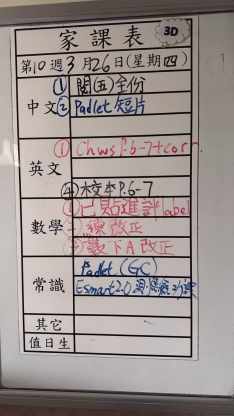 家課表 3D
第10週3月26日(星期四)
中文 ① 閱(五)全份
② Padlet 短片
英文 ① Chws P.6-7+corr.
④ 木文本P.6-7
數學 ① 已貼進評label
② 練改正
③ 數下A改正
常識 Padlet (GC)
Esmart2.0
其它
值日生